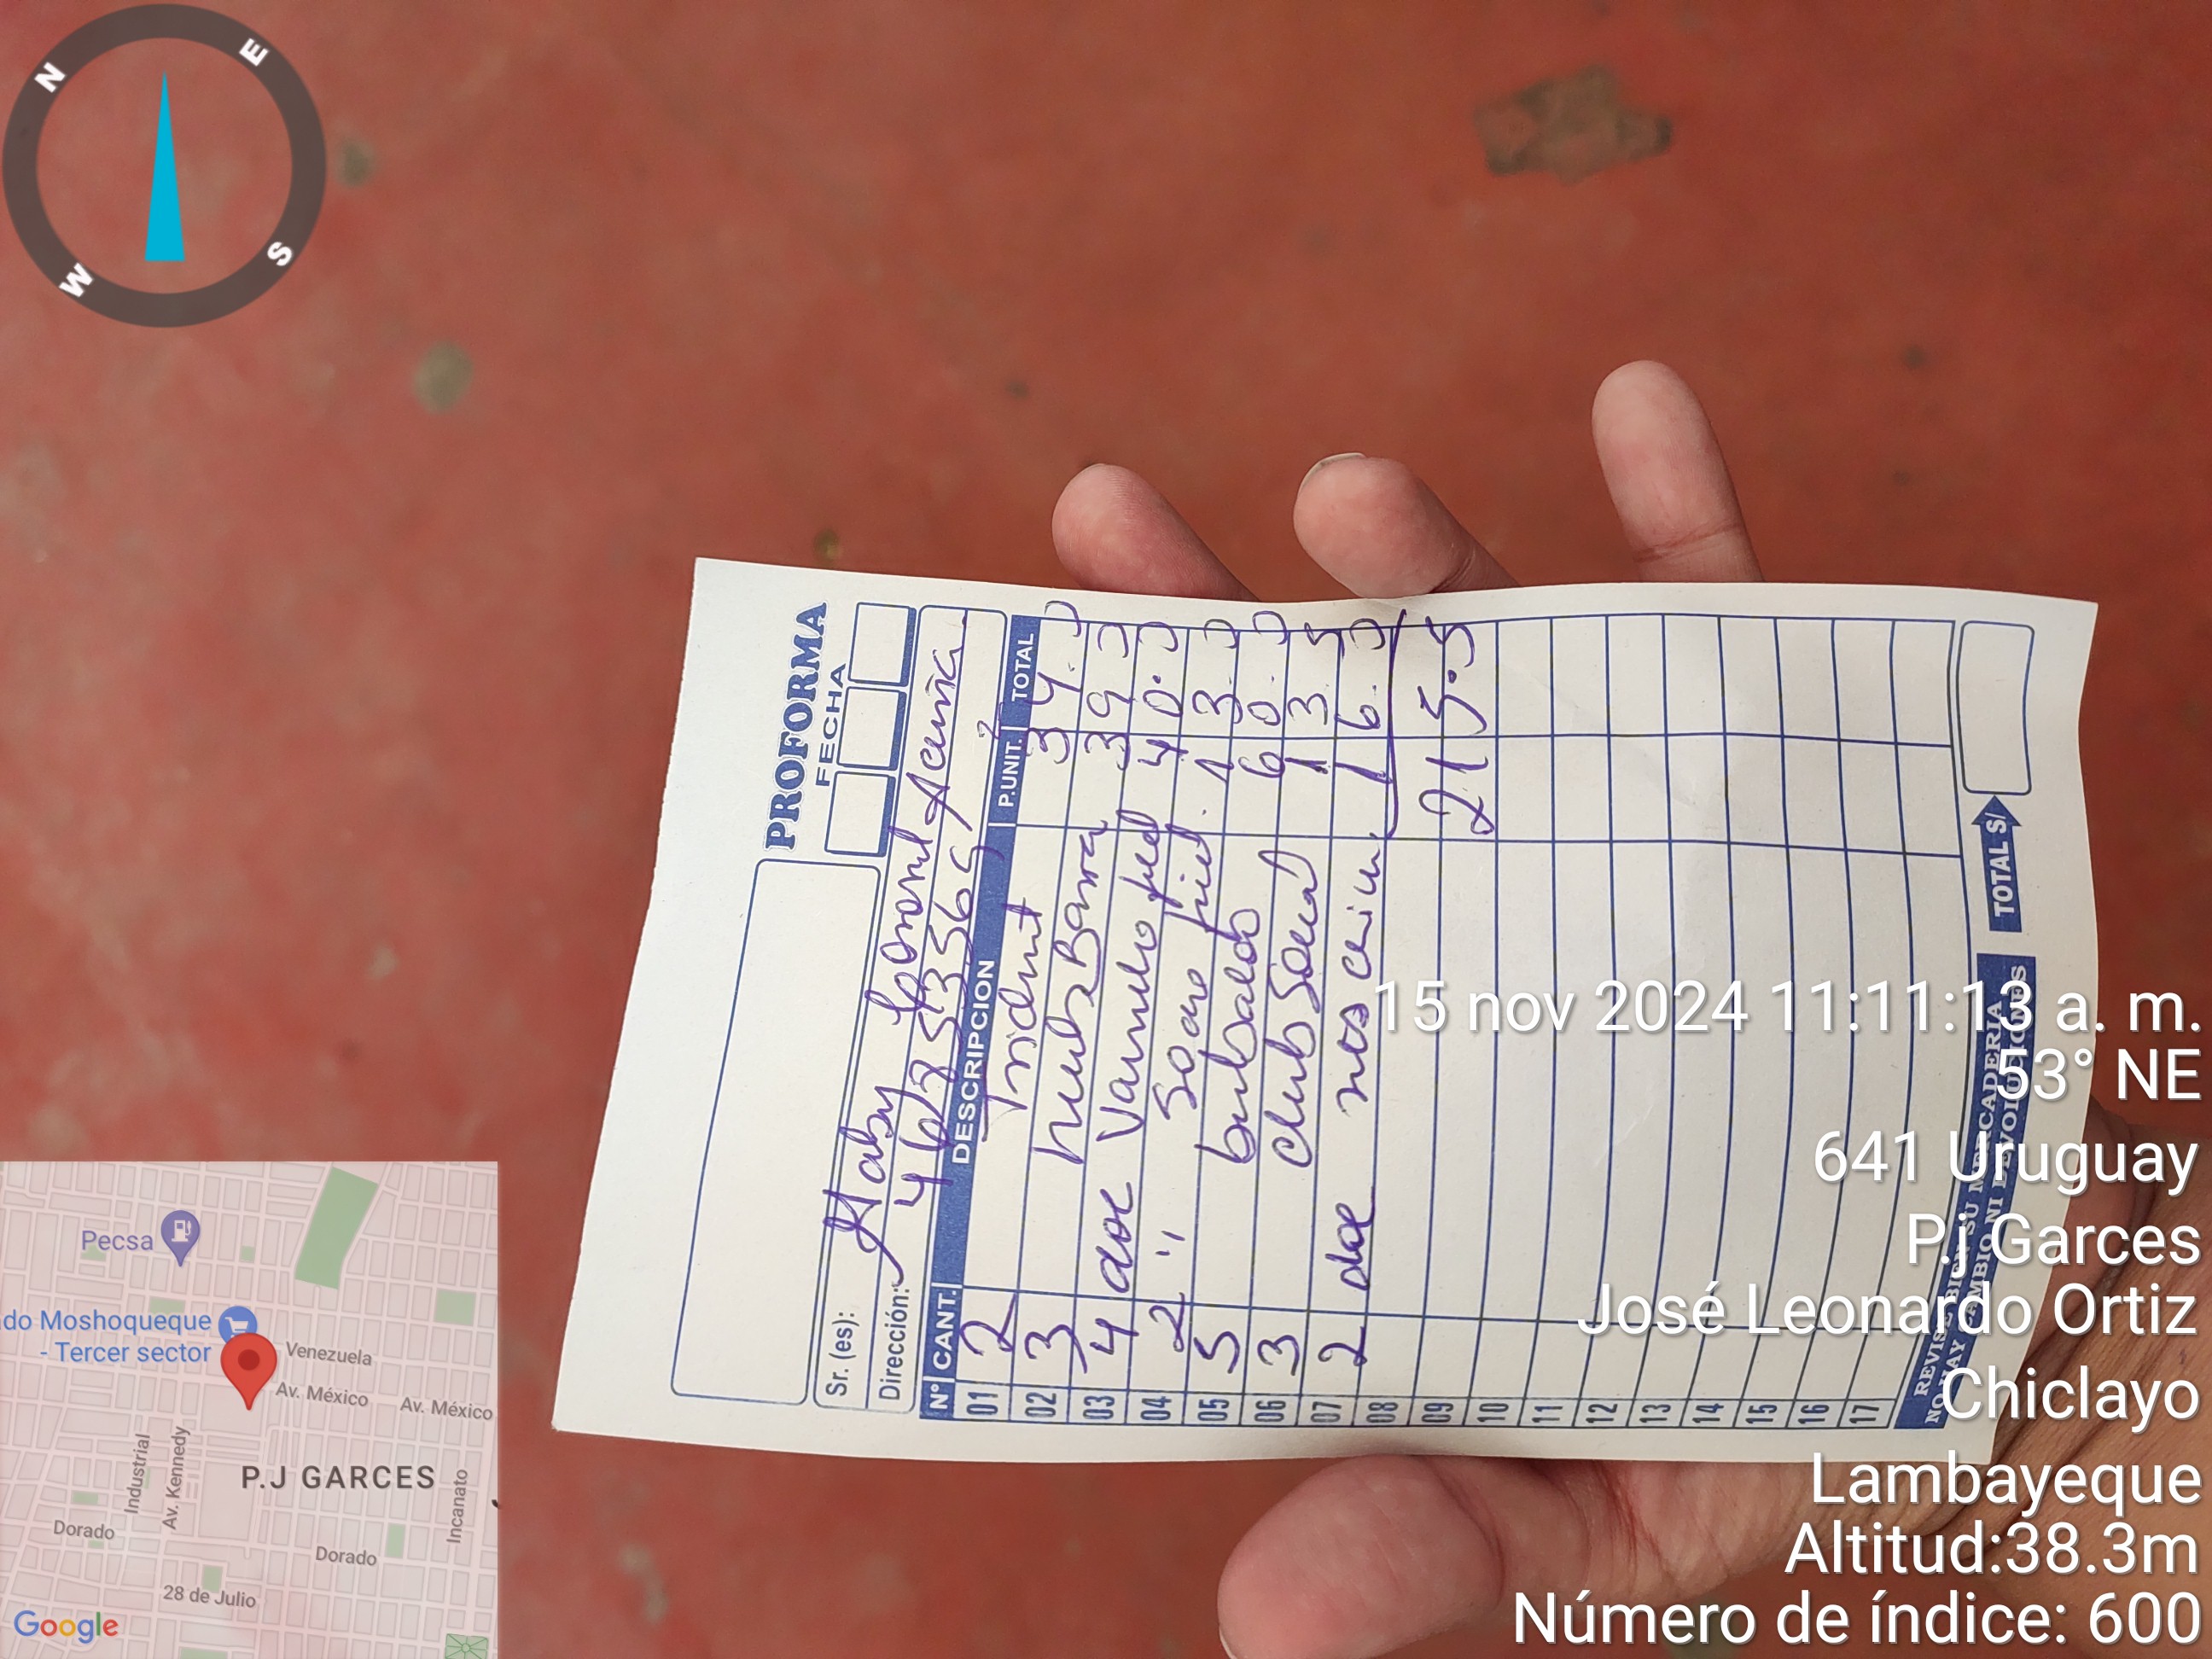 N
E
S
W
PROFORMA
FECHA
Sr. (es): Gaby Acuña
Dirección:
N° CANT. DESCRIPCION P.UNIT. TOTAL
01 2 Trident 34.0
02 3 39.0
03 4 doc Vainilla fiel 40.0
04 2 " fiel 13.0
05 5 60.0
06 3 club Social 13.5
07 2 doc 16.0
08
09 215.5
10
11
12
13
14
15
16
17
TOTAL S/
REVISE BIEN SU MERCADERIA
NO HAY CAMBIO NI DEVOLUCIONES
15 nov 2024 11:11:13 a. m.
53° NE
641 Uruguay
P.j Garces
José Leonardo Ortiz
Chiclayo
Lambayeque
Altitud:38.3m
Número de índice: 600
Pecsa
do Moshoqueque
- Tercer sector
Venezuela
Av. México
Av. México
Industrial
Av. Kennedy
P.J GARCES
Incanato
Dorado
Dorado
28 de Julio
Google